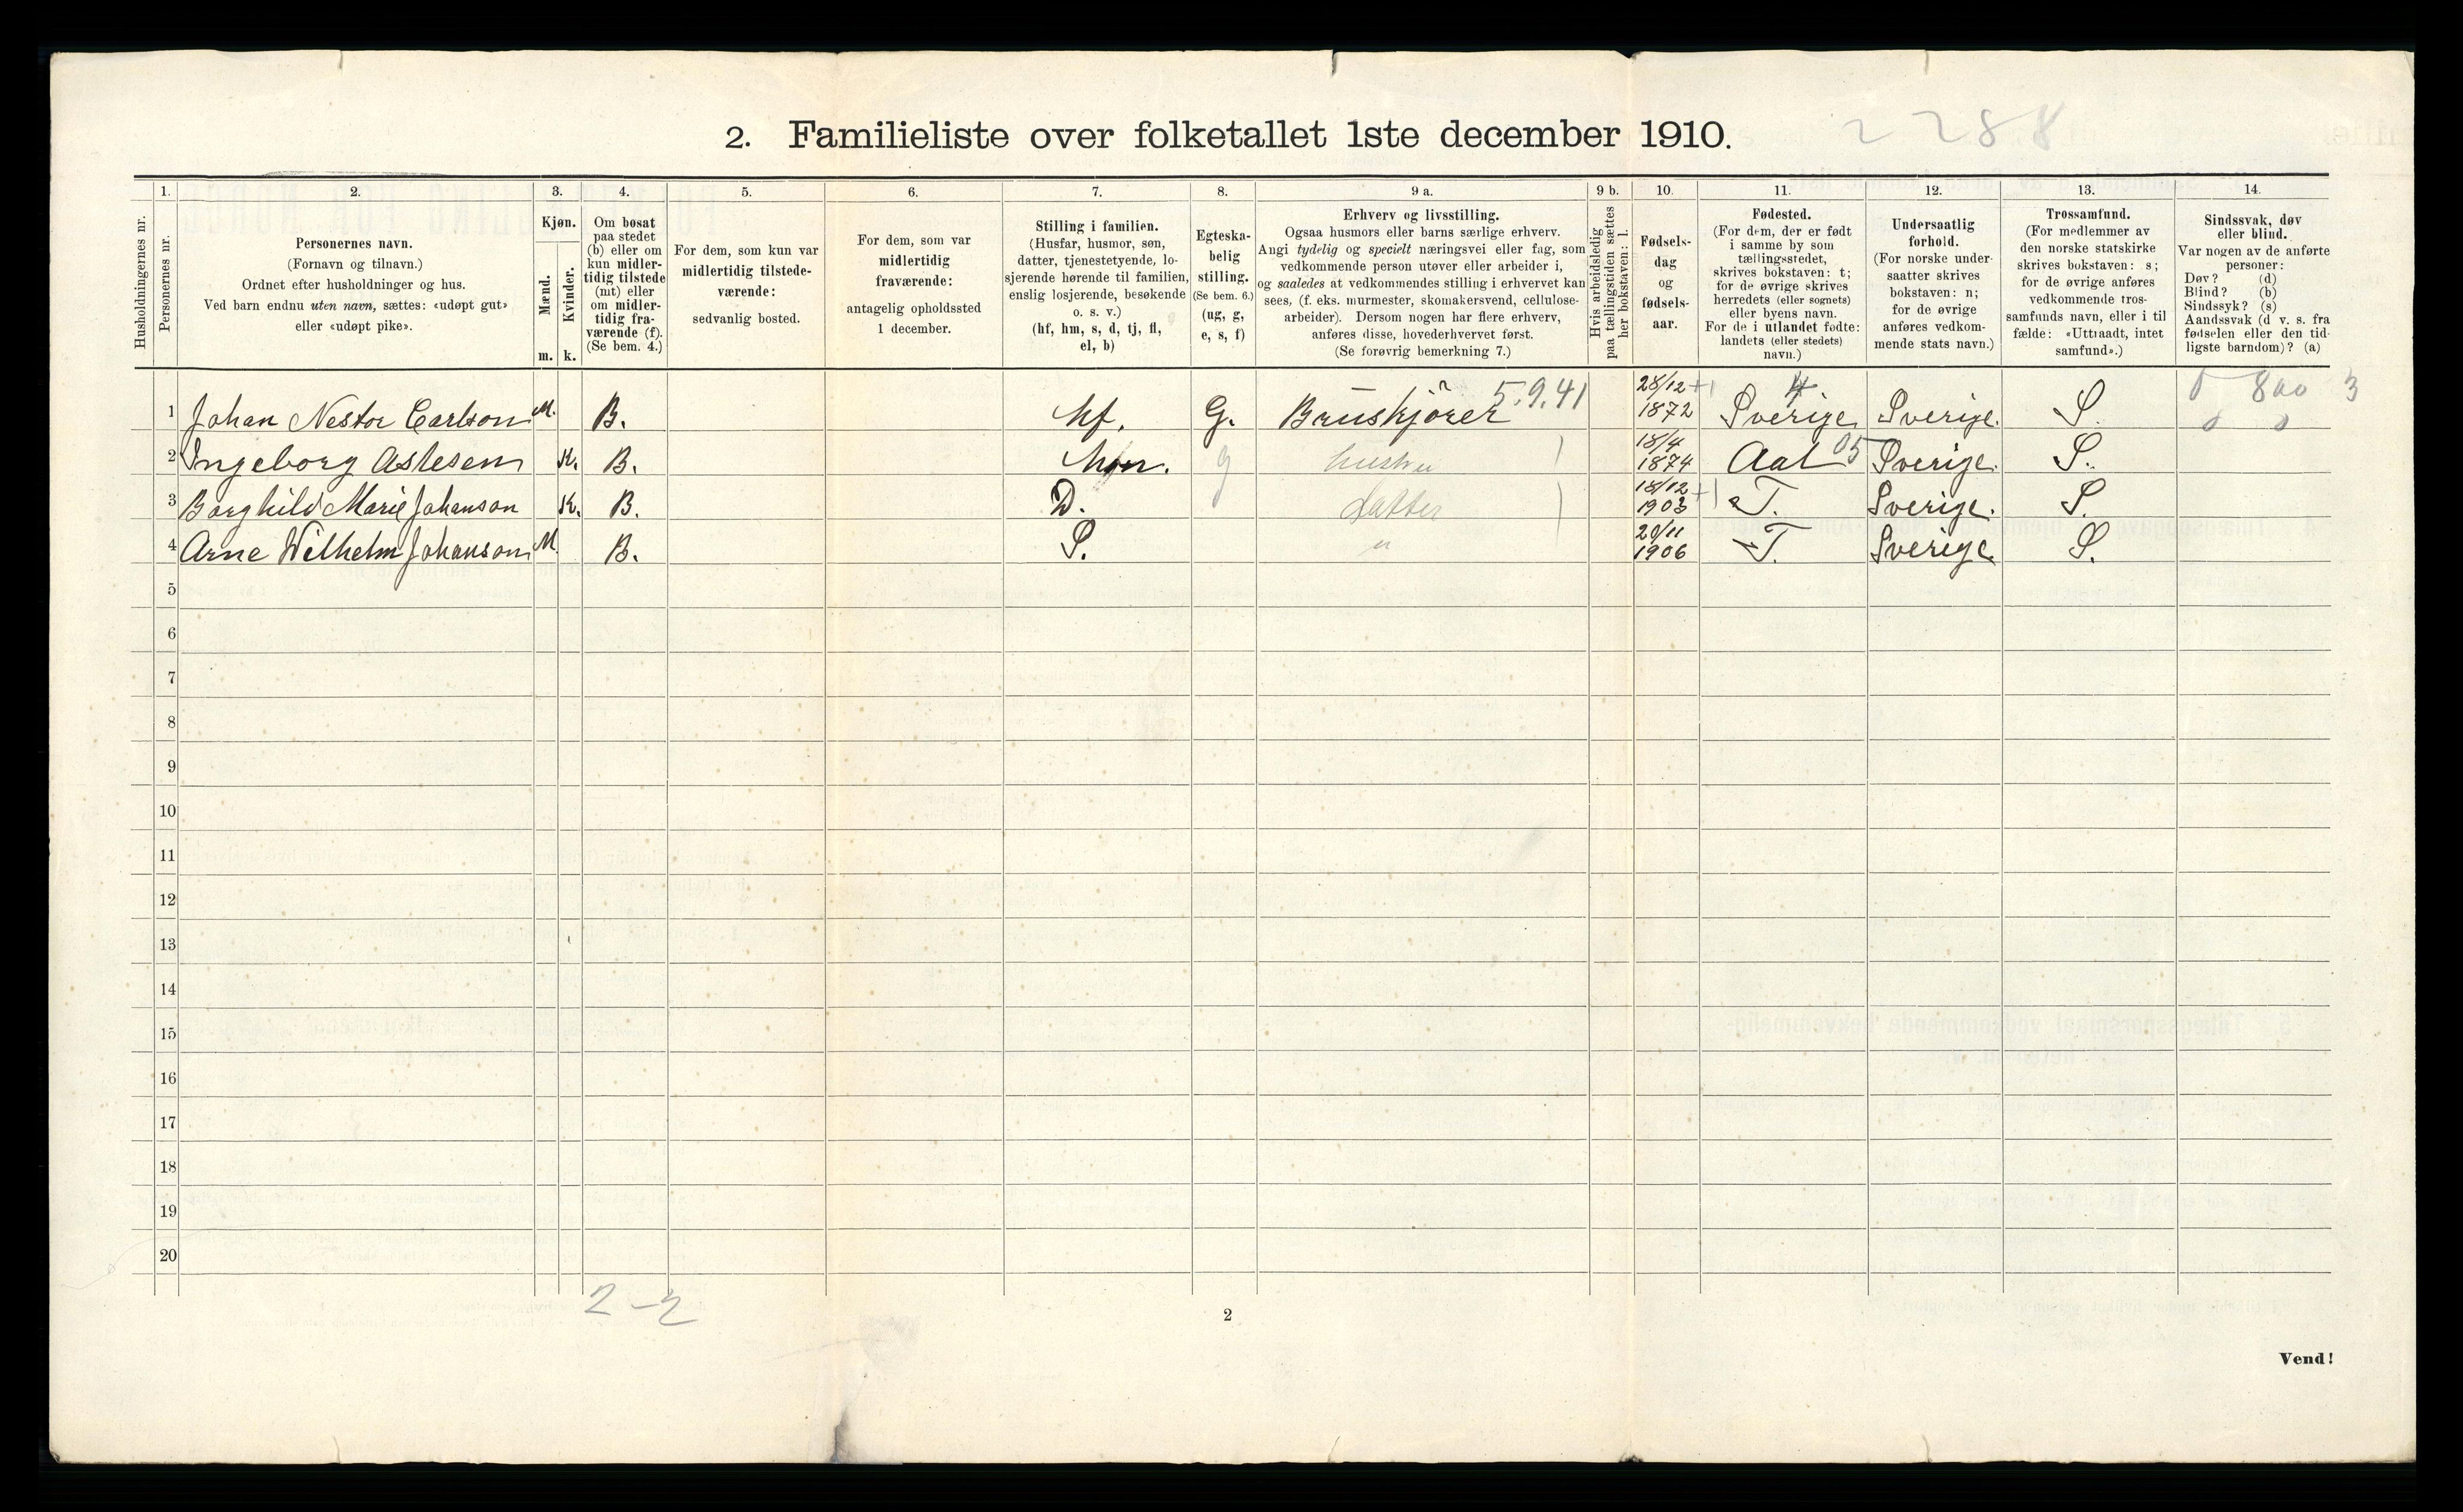 2. Familieliste over folketallet 1ste december 1910.
2288
Husholdningernes nr.
1.
Personernes nr.
2.
Personernes navn.
(Fornavn og tilnavn.)
Ordnet efter husholdninger og hus.
Ved barn endnu uten navn, sættes: «udøpt gut»
eller «udøpt pike».
3.
Kjøn.
Mænd.
m.
Kvinder.
k.
4.
Om bosat
paa stedet
(b) eller om
kun midler-
tidig tilstede
(mt) eller
om midler-
tidig fra-
værende (f).
(Se bem. 4.)
5.
For dem, som kun var
midlertidig tilstede-
værende:
sedvanlig bosted.
6.
For dem, som var
midlertidig
fraværende:
antagelig opholdssted
1 december.
7.
Stilling i familien.
(Husfar, husmor, søn,
datter, tjenestetyende, lo-
sjerende hørende til familien,
enslig losjerende, besøkende
o. s. v.)
(hf, hm, s, d, tj, fl,
el, b)
8.
Egteska-
belig
stilling.
(Se bem. 6.)
(ug, g,
e, s, f)
9 a.
Erhverv og livsstilling.
Ogsaa husmors eller barns særlige erhverv.
Angi tydelig og specielt næringsvei eller fag, som
vedkommende person utøver eller arbeider i,
og saaledes at vedkommendes stilling i erhvervet kan
sees, (f. eks. murmester, skomakersvend, cellulose-
arbeider). Dersom nogen har flere erhverv,
anføres disse, hovederhvervet først.
(Se forøvrig bemerkning 7.)
9 b.
Hvis arbeidsledig
paa tællingstiden sættes
her bokstaven: l.
10.
Fødsels-
dag
og
fødsels-
aar.
11.
Fødested.
(For dem, der er født
i samme by som
tællingsstedet,
skrives bokstaven: t;
for de øvrige skrives
herredets (eller sognets)
eller byens navn.
For de i utlandet fødte:
landets (eller stedets)
navn.)
12.
Undersaatlig
forhold.
(For norske under-
saatter skrives
bokstaven: n;
for de øvrige
anføres vedkom-
mende stats navn.)
13.
Trossamfund.
(For medlemmer av
den norske statskirke
skrives bokstaven: s;
for de øvrige anføres
vedkommende tros-
samfunds navn, eller i til
fælde: «Uttraadt, intet
samfund».)
14.
Sindssvak, døv
eller blind.
Var nogen av de anførte
personer:
Døv? (d)
Blind? (b)
Sindssyk? (s)
Aandssvak (d v. s. fra
fødselen eller den tid-
ligste barndom)? (a)
1 Johan Nestor Carlson M. B. hf. G. Bruskjører 5.9.41 28/12 1872 Sverige Sverige. S. 800 3
2 Ingeborg Aslesen K. B. hm. g hustru 18/4 1874 Aal 05 Sverige. S.
3 Borghild Marie Johanson K. B. D. datter 18/12 1903 T. Sverige. S.
4 Arne Wilhelm Johanson M. B. S. " 20/11 1906 T. Sverige. S.
5
6
7
8
9
10
11
12
13
14
15
16
17
18
19
20
2-2
2
Vend!